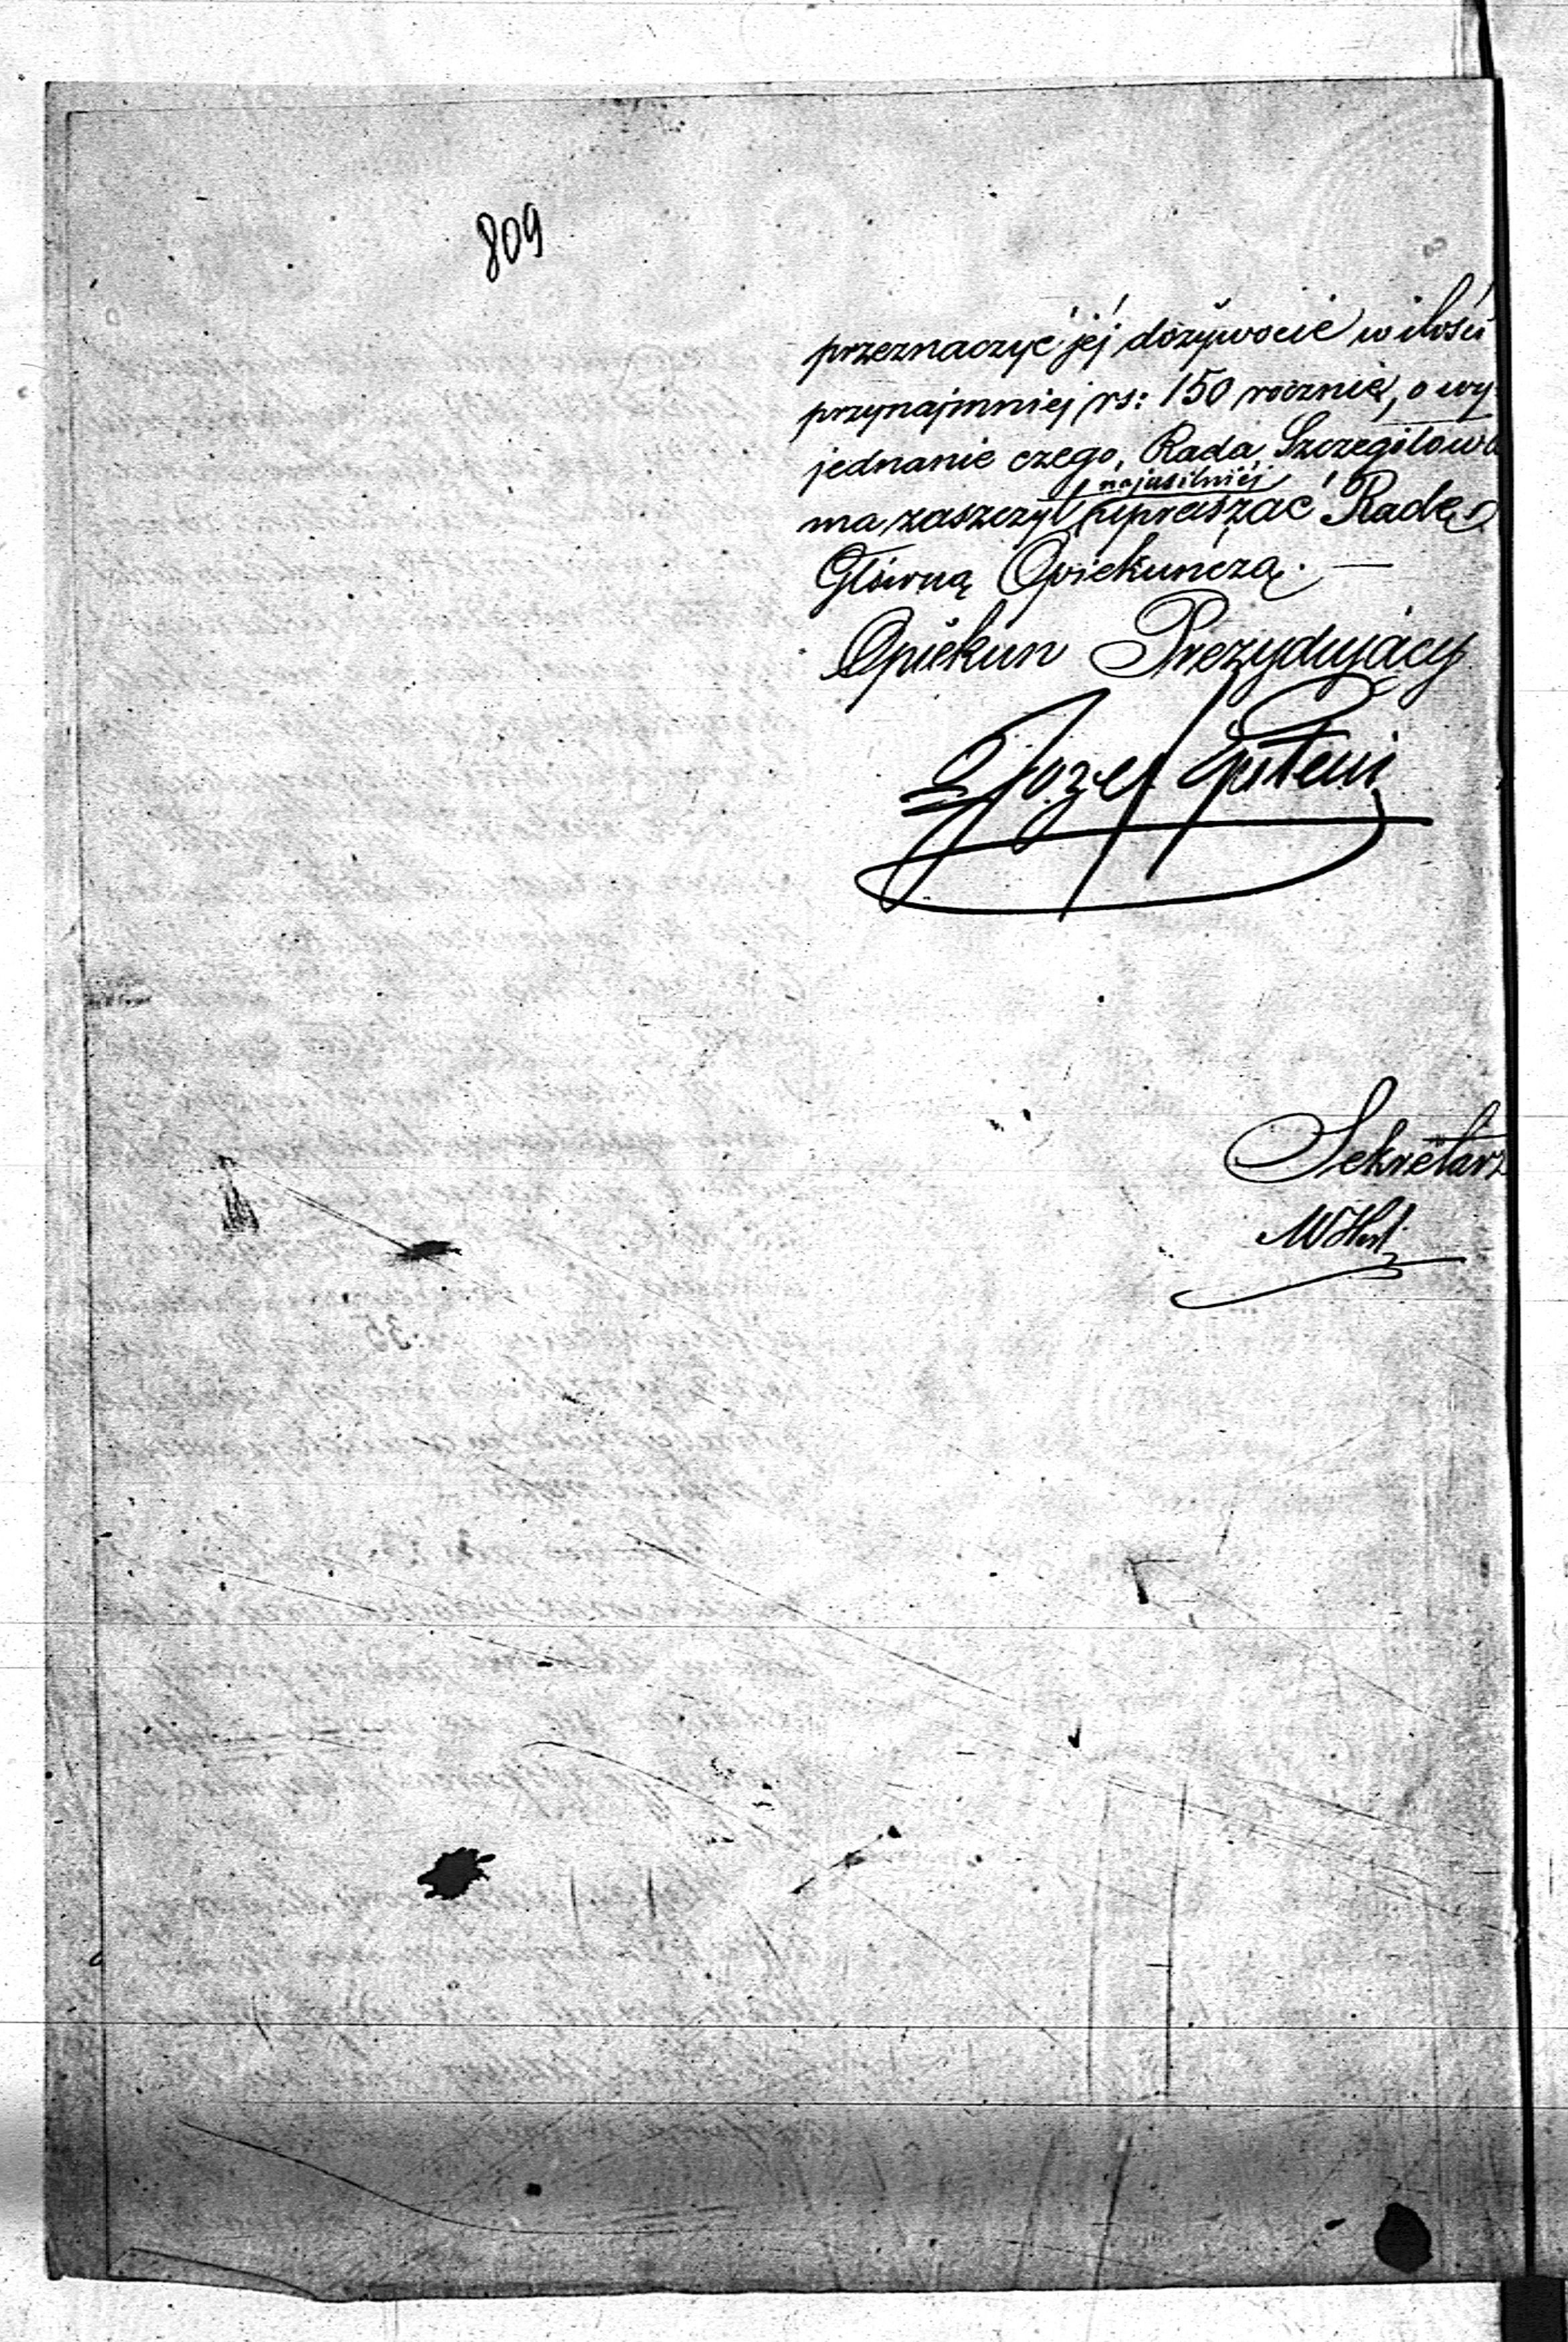 809
przeznaczyć jéj dożywocie w ilości
przynajmniej rs: 150 rocznie, o wy-
jednanie czego, Rada Szczegółowa
najusilniéj
ma zaszczyt upraszać Radę
Główną Opiekuńczą. —
Opiekun Prezydujący
Józef Epstein
Sekretarz